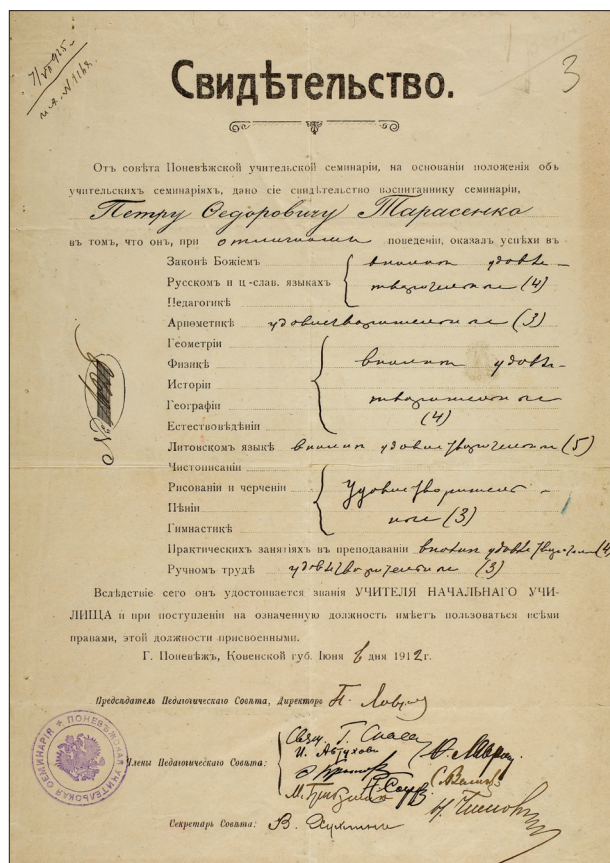 7/VII 925
3
Свидѣтельство.
Отъ совѣта Поневѣжской учительской семинаріи, на основаніи положенія объ
учительскихъ семинаріяхъ, дано сіе свидѣтельство воспитаннику семинаріи,
Петру Ѳедоровичу Тарасенко
въ томъ, что онъ, при отличномъ поведеніи, оказалъ успѣхи въ
Законѣ Божіемъ вполнѣ удовле-
Русскомъ и ц-слав. языкахъ творительные (4)
Педагогикѣ
Ариѳметикѣ удовлетворительные (3)
Геометріи
Физикѣ вполнѣ удовле-
Исторіи
Географіи творительные
(4)
Естествовѣдѣніи
Литовскомъ языкѣ вполнѣ удовлетворительные (5)
Чистописаніи
Рисованіи и черченіи Удовлетворитель-
Пѣніи ные (3)
Гимнастикѣ
Практическихъ занятіяхъ въ преподаваніи вполнѣ удовлетворительные (4)
Ручномъ трудѣ удовлетворительные (3)
Вслѣдствіе сего онъ удостоивается званія УЧИТЕЛЯ НАЧАЛЬНАГО УЧИ-
ЛИЩА и при поступленіи на означенную должность имѣетъ пользоваться всѣми
правами, этой должности присвоенными.
Г. Поневѣжъ, Ковенской губ. Іюня 6 дня 1912 г.
Предсѣдатель Педагогическаго Совѣта, Директоръ
Члены Педагогическаго Совѣта:
И. Автуховъ
Секретарь Совѣта: В.
ПОНЕВѢЖСКАЯ УЧИТЕЛЬСКАЯ СЕМИНАРІЯ
№